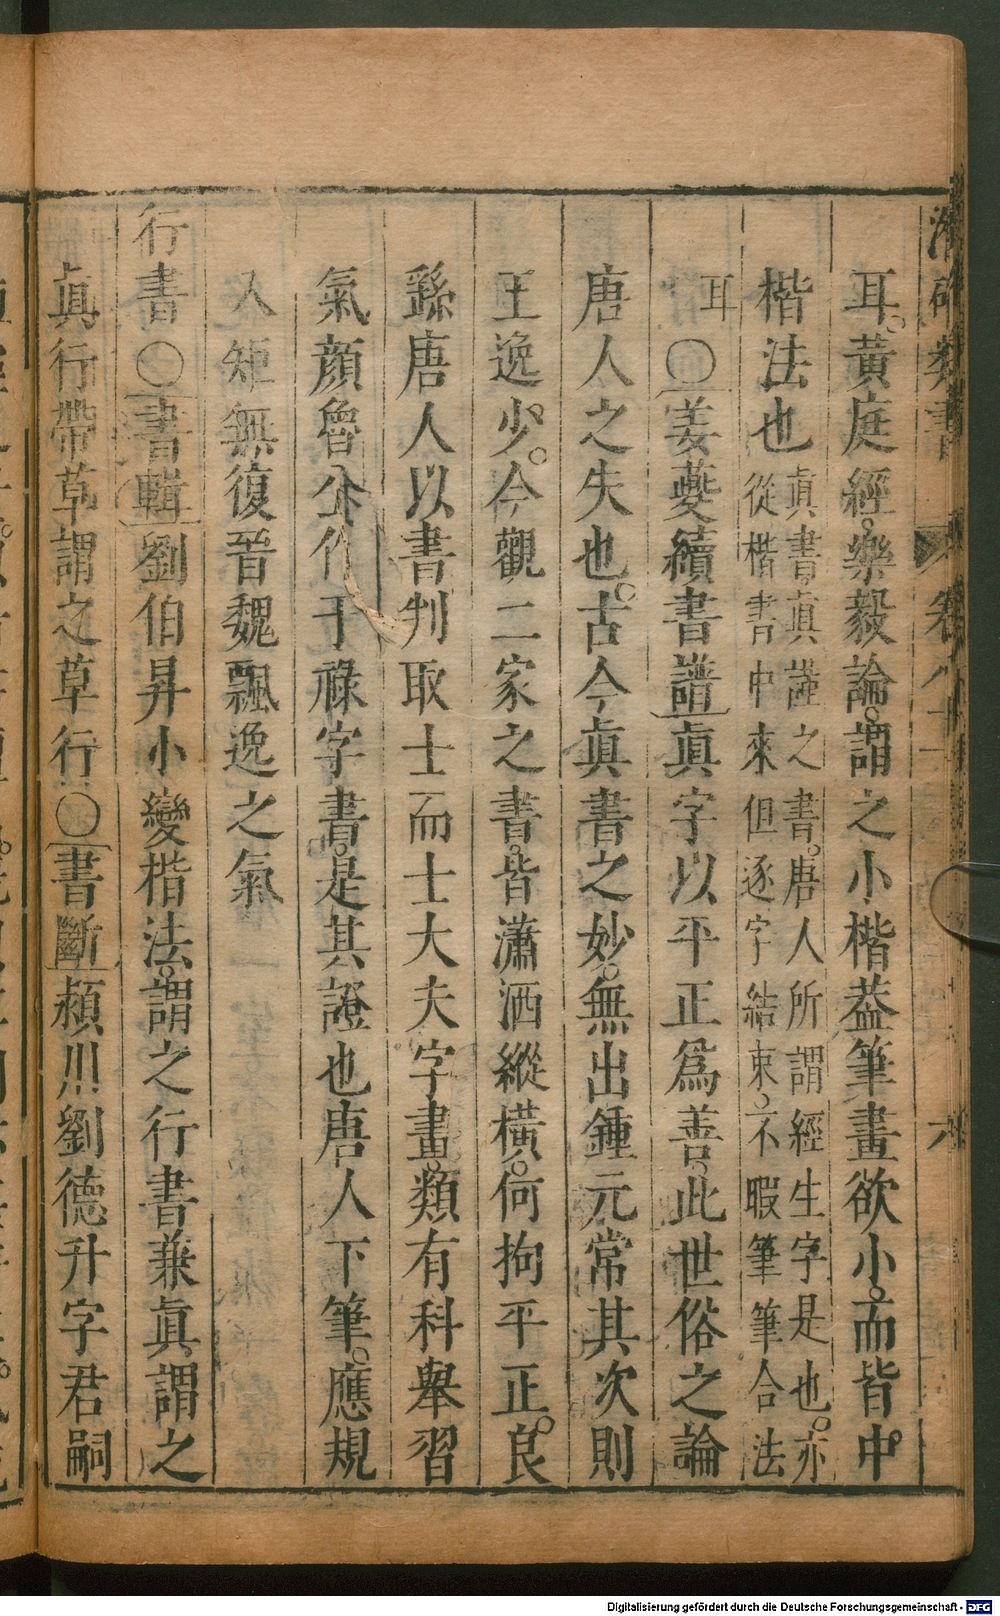 耳。黃庭經。樂毅論。謂之小楷葢筆畫欲小。而皆中。
楷法也眞書眞謹之書。唐人所謂經生字是也。亦從楷書中來但逐字結束。不暇筆筆合法
耳〇姜夔續書譜眞字以平正爲善。此世俗之論
唐人之失也。古今眞書之妙。無出鍾元常其次則
王逸少。今觀二家之書。皆瀟洒縱橫。何拘平正。良
繇唐人以書判取士而士大夫字畫。類有科舉習
氣顏魯公作干祿字書。是其證也唐人下筆。應規
入矩無復晉魏飄逸之氣
行書〇書輯劉伯昇小變楷法。謂之行書兼眞謂之
眞行帶草謂之草行〇書斷潁川劉德升字君嗣
類書
六
Digitalisierung gefördert durch die Deutsche Forschungsgemeinschaft - DFG